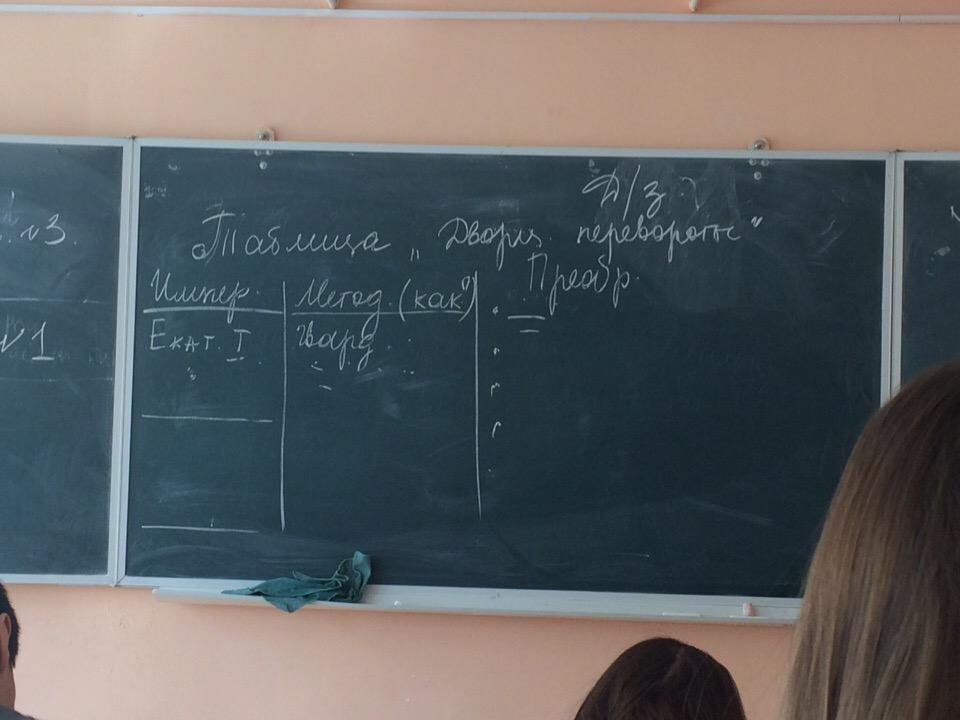 №3.
№1
Д/з
Таблица „Дворц. перевороты"
Импер. Метод. (как?) Преобр.
Екат. I Гвард